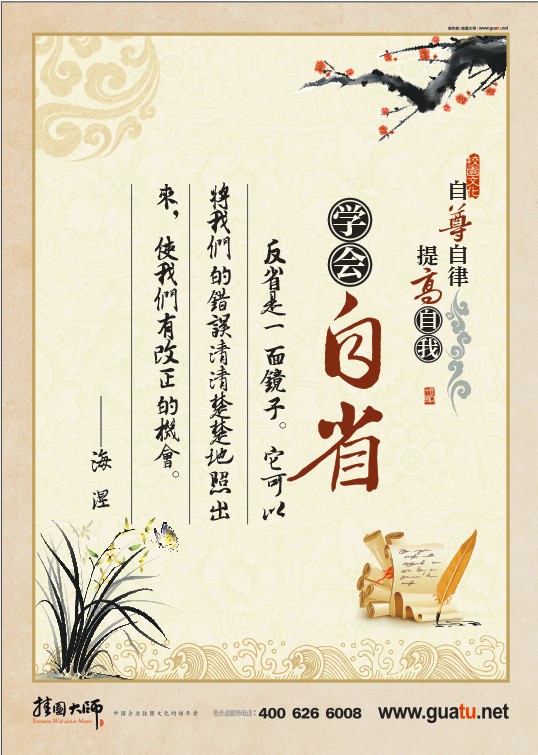 挂图大师 | www.guatu.net
校园文化
自尊自律
提高自我
学会自省
反省是一面鏡子。它可以
將我們的錯誤清清楚楚地照出
來，使我們有改正的機會。
——海涅
挂图大师
Enterprise Wall picture Master
中国企业挂图文化的领导者
免长途服务电话：400 626 6008
www.guatu.net